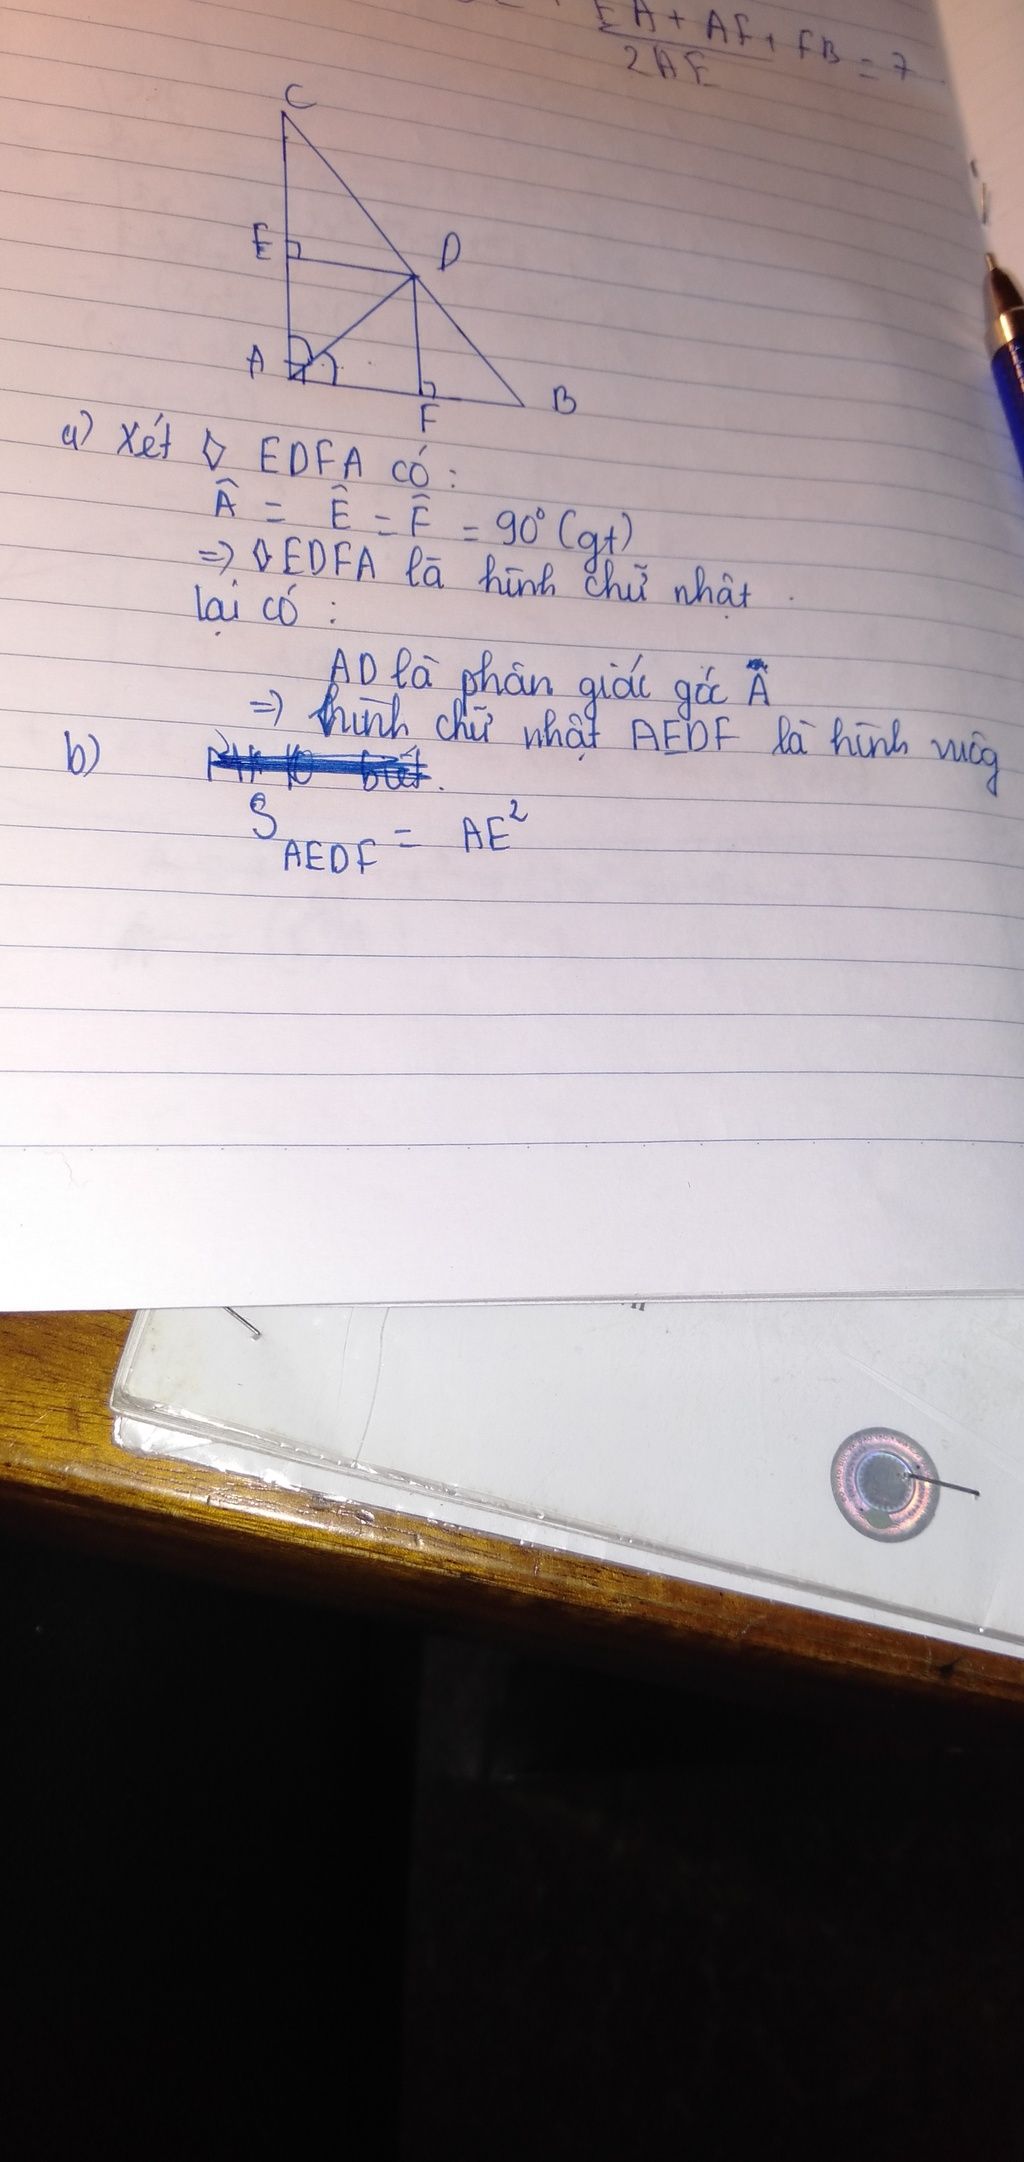 EA + AF + FB = 7
2AE
C
E
D
A
F
B
a) Xét ◊ EDFA có :
Â = Ê = F̂ = 90° (gt)
=> ◊EDFA là hình chữ nhật .
lại có :
AD là phân giác góc Â
=> hình chữ nhật AEDF là hình vuôg
b)
S AEDF = AE²